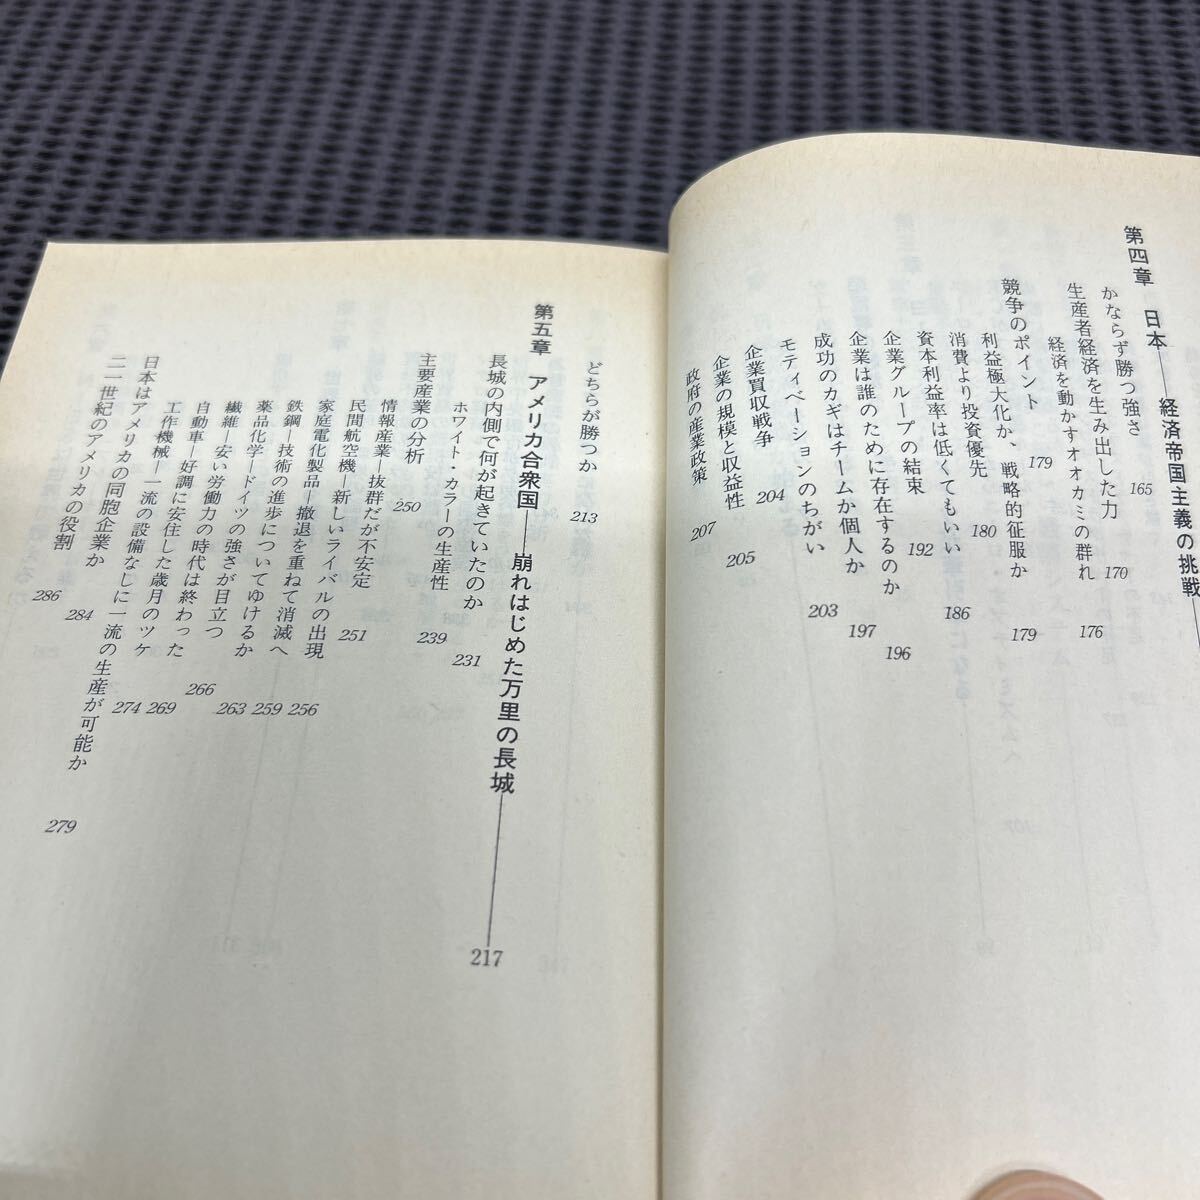 第四章　日本――経済帝国主義の挑戦――
かならず勝つ強さ　165
生産者経済を生み出した力　170
経済を動かすオオカミの群れ　176
競争のポイント　179
利益極大化か、戦略的征服か　179
消費より投資優先　180
資本利益率は低くてもいい　186
企業グループの結束　192
企業は誰のために存在するのか　196
成功のカギはチームか個人か　197
モティベーションのちがい　203
企業買収戦争　204
企業の規模と収益性　205
政府の産業政策　207
どちらが勝つか　213
第五章　アメリカ合衆国――崩れはじめた万里の長城――217
長城の内側で何が起きていたのか　231
ホワイト・カラーの生産性　239
主要産業の分析　250
情報産業―抜群だが不安定　251
民間航空機―新しいライバルの出現　256
家庭電化製品―撤退を重ねて消滅へ　259
鉄鋼―技術の進歩についてゆけるか　263
薬品化学―ドイツの強さが目立つ　266
繊維―安い労働力の時代は終わった　269
自動車―好調に安住した歳月のツケ　274
工作機械―一流の設備なしに一流の生産が可能か　279
日本はアメリカの同胞企業か　284
二一世紀のアメリカの役割　286